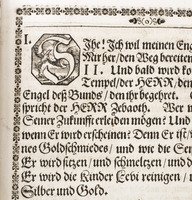 I.
SIhe! Ich wil meinen Enge
Mir her/ den Weg bereiten
II. Und bald wird ko
Tempel/der HERR/den
Engel deß Bunds/den ihr begehret.
spricht der HERR Zebaoth. Wer
Seiner Zukunfft erleiden mögen? Und
wenn Er wird erscheinen? Denn Er ist
nes Goldschmiedes/ und wie die Sei
Er wird sitzen/ und schmeltzen/ und
Er wird die Kinder Levi reinigen/ und
Silber und Gold.